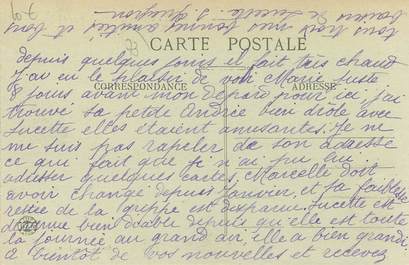 CARTE POSTALE
CORRESPONDANCE
ADRESSE
depuis quelques jours il fait très chaud
J'ai eu le plaisir de voir Marie juste
8 jours avant mon départ pour ici, j'ai
trouvé sa petite Andrée bien drôle avec
Lucette elles étaient amusantes. Je ne
me suis pas rapeler de son adresse
ce qui fait que je n'ai pu lui
adresser quelques cartes, Marcelle doit
avoir changé depuis Janvier, et sa faiblesse
restée de la grippe est disparue. Lucette est
devenue bien diable depuis qu'elle est toute
la journée au grand air, elle a bien grandi
à bientôt de vos nouvelles et recevez
tous trois nos bonnes amitiés et bons
baisers de Lucette.